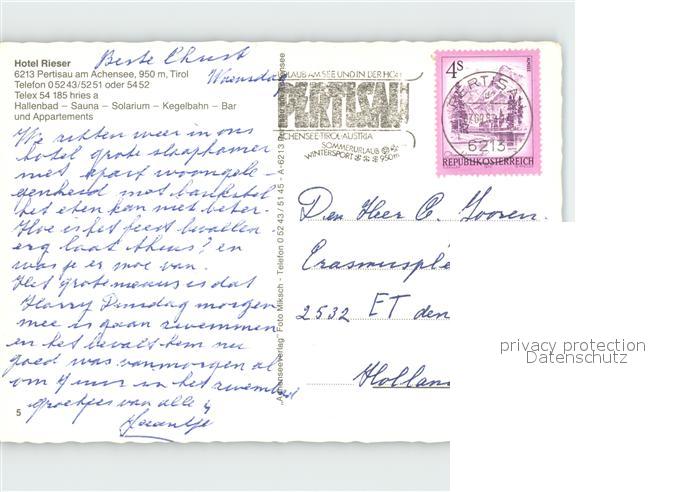 Hotel Rieser
6213 Pertisau am Achensee, 950 m, Tirol
Telefon 05243/5251 oder 5452
Telex 54 185 hries a
Hallenbad – Sauna – Solarium – Kegelbahn – Bar
und Appartements
Beste Chust
Woensdag
We zitten weer in ons
hotel grote slaapkamer
met apart woongele-
genheid met bankstel
het eten kan niet beter.
Hoe is het feest bevallen
erg laat thuis? en
was je er moe van.
Het grote nieuws is dat
Harry Dinsdag morgen
mee is gaan zwemmen
en het bevalt hem nu
goed was vanmorgen al
om 7 uur in het zwembad
groetjes van alle 4
Jaantje
5
"Achenseeverlag" Foto Miksch - Telefon 05243/5145 - A-6213
URLAUB AM SEE UND IN DER HÖH
PERTISAU
ACHENSEE-TIROL-AUSTRIA
SOMMERURLAUB
WINTERSPORT 950m
4S
PERTISAU
6213
REPUBLIK ÖSTERREICH
Den Heer C. Gooren.
Erasmusple
2532 ET den
Holland
privacy protection
Datenschutz